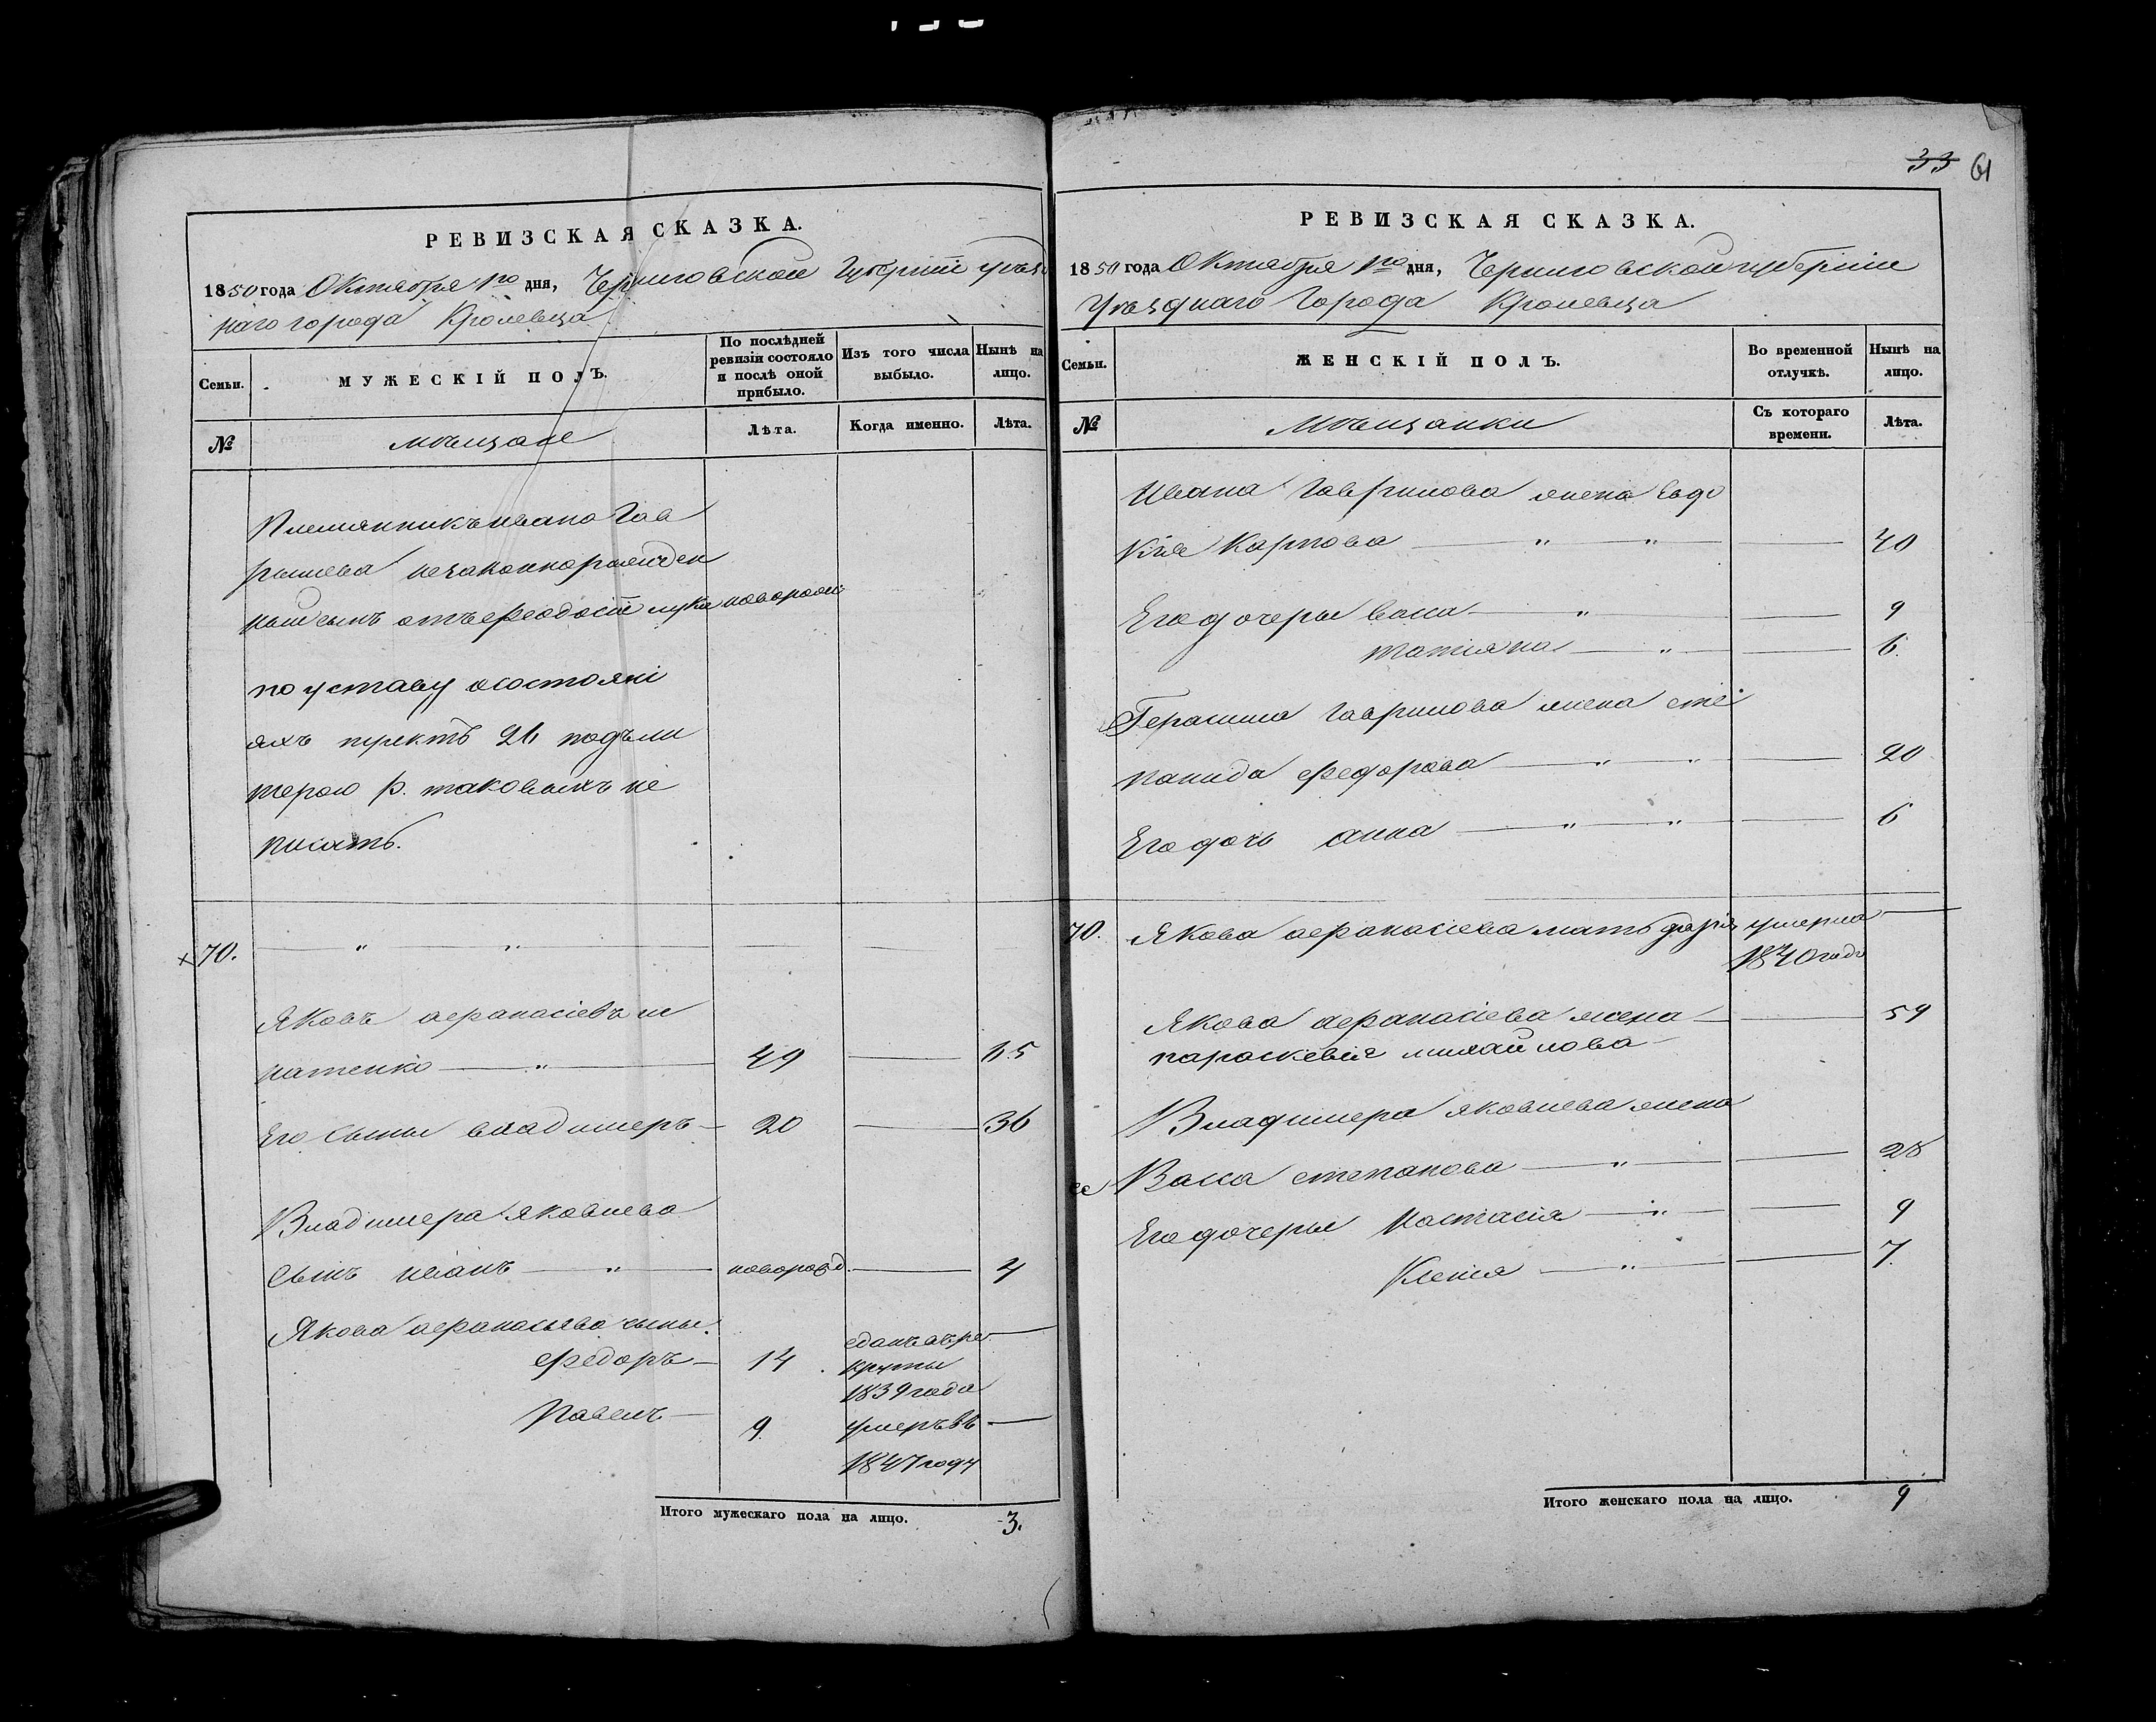 33 61
РЕВИЗСКАЯ СКАЗКА.
1850 года Октября 1го дня, Черниговской Губерніи уѣзд
наго города Кролевца
Семьи.
МУЖЕСКІЙ ПОЛЪ.
По послѣдней ревизіи состояло и послѣ оной прибыло.
Изъ того числа выбыло.
Нынѣ на лицо.
№
мѣщане
Лѣта.
Когда именно.
Лѣта.
Племянникъ ивана Гав
рилова незаконнорожден
ный сынъ отъ Феодосіи лука новорож
по уставу осостояні
яхъ пунктъ 26 подъ ли
терою р. таковыхъ не
писать.
70. — " — "
Яковъ Афанасіевъ
49 — 65
Его сыны владимеръ — 20 — 36
Владимера яковлева
сынъ иванъ — " — новорожд. — 4
Якова афанасьева сыны
Федоръ — 14 сданъ въ ре —
круты
1839 года
Павелъ — 9 умеръ въ —
1847 году
Итого мужескаго пола на лицо. 3.
РЕВИЗСКАЯ СКАЗКА.
1850 года Октября 1го дня, Черниговской губерніи
Уѣзднаго Города Кролевца
Семьи.
ЖЕНСКІЙ ПОЛЪ.
Во временной отлучкѣ.
Нынѣ на лицо.
№
Мѣщанки
Съ котораго времени.
Лѣта.
Ивана Гаврилова жена Евдо
кія Карпова — " — " — 40
Его дочеры васа — " — 9
татіяна — " — 6.
Герасима гаврилова жена сте
панида федорова — " — " — 20
Его дочь анна — " — " — 6
70. Якова афанасіева мать дарія умерла —
1840 года
Якова афанасіева жена — 59
параскевія михайлова
Владимера яковлева жена
Васса степанова — " — 28
Его дочеры Настасія — " — 9
— " — 7.
Итого женскаго пола на лицо. 9